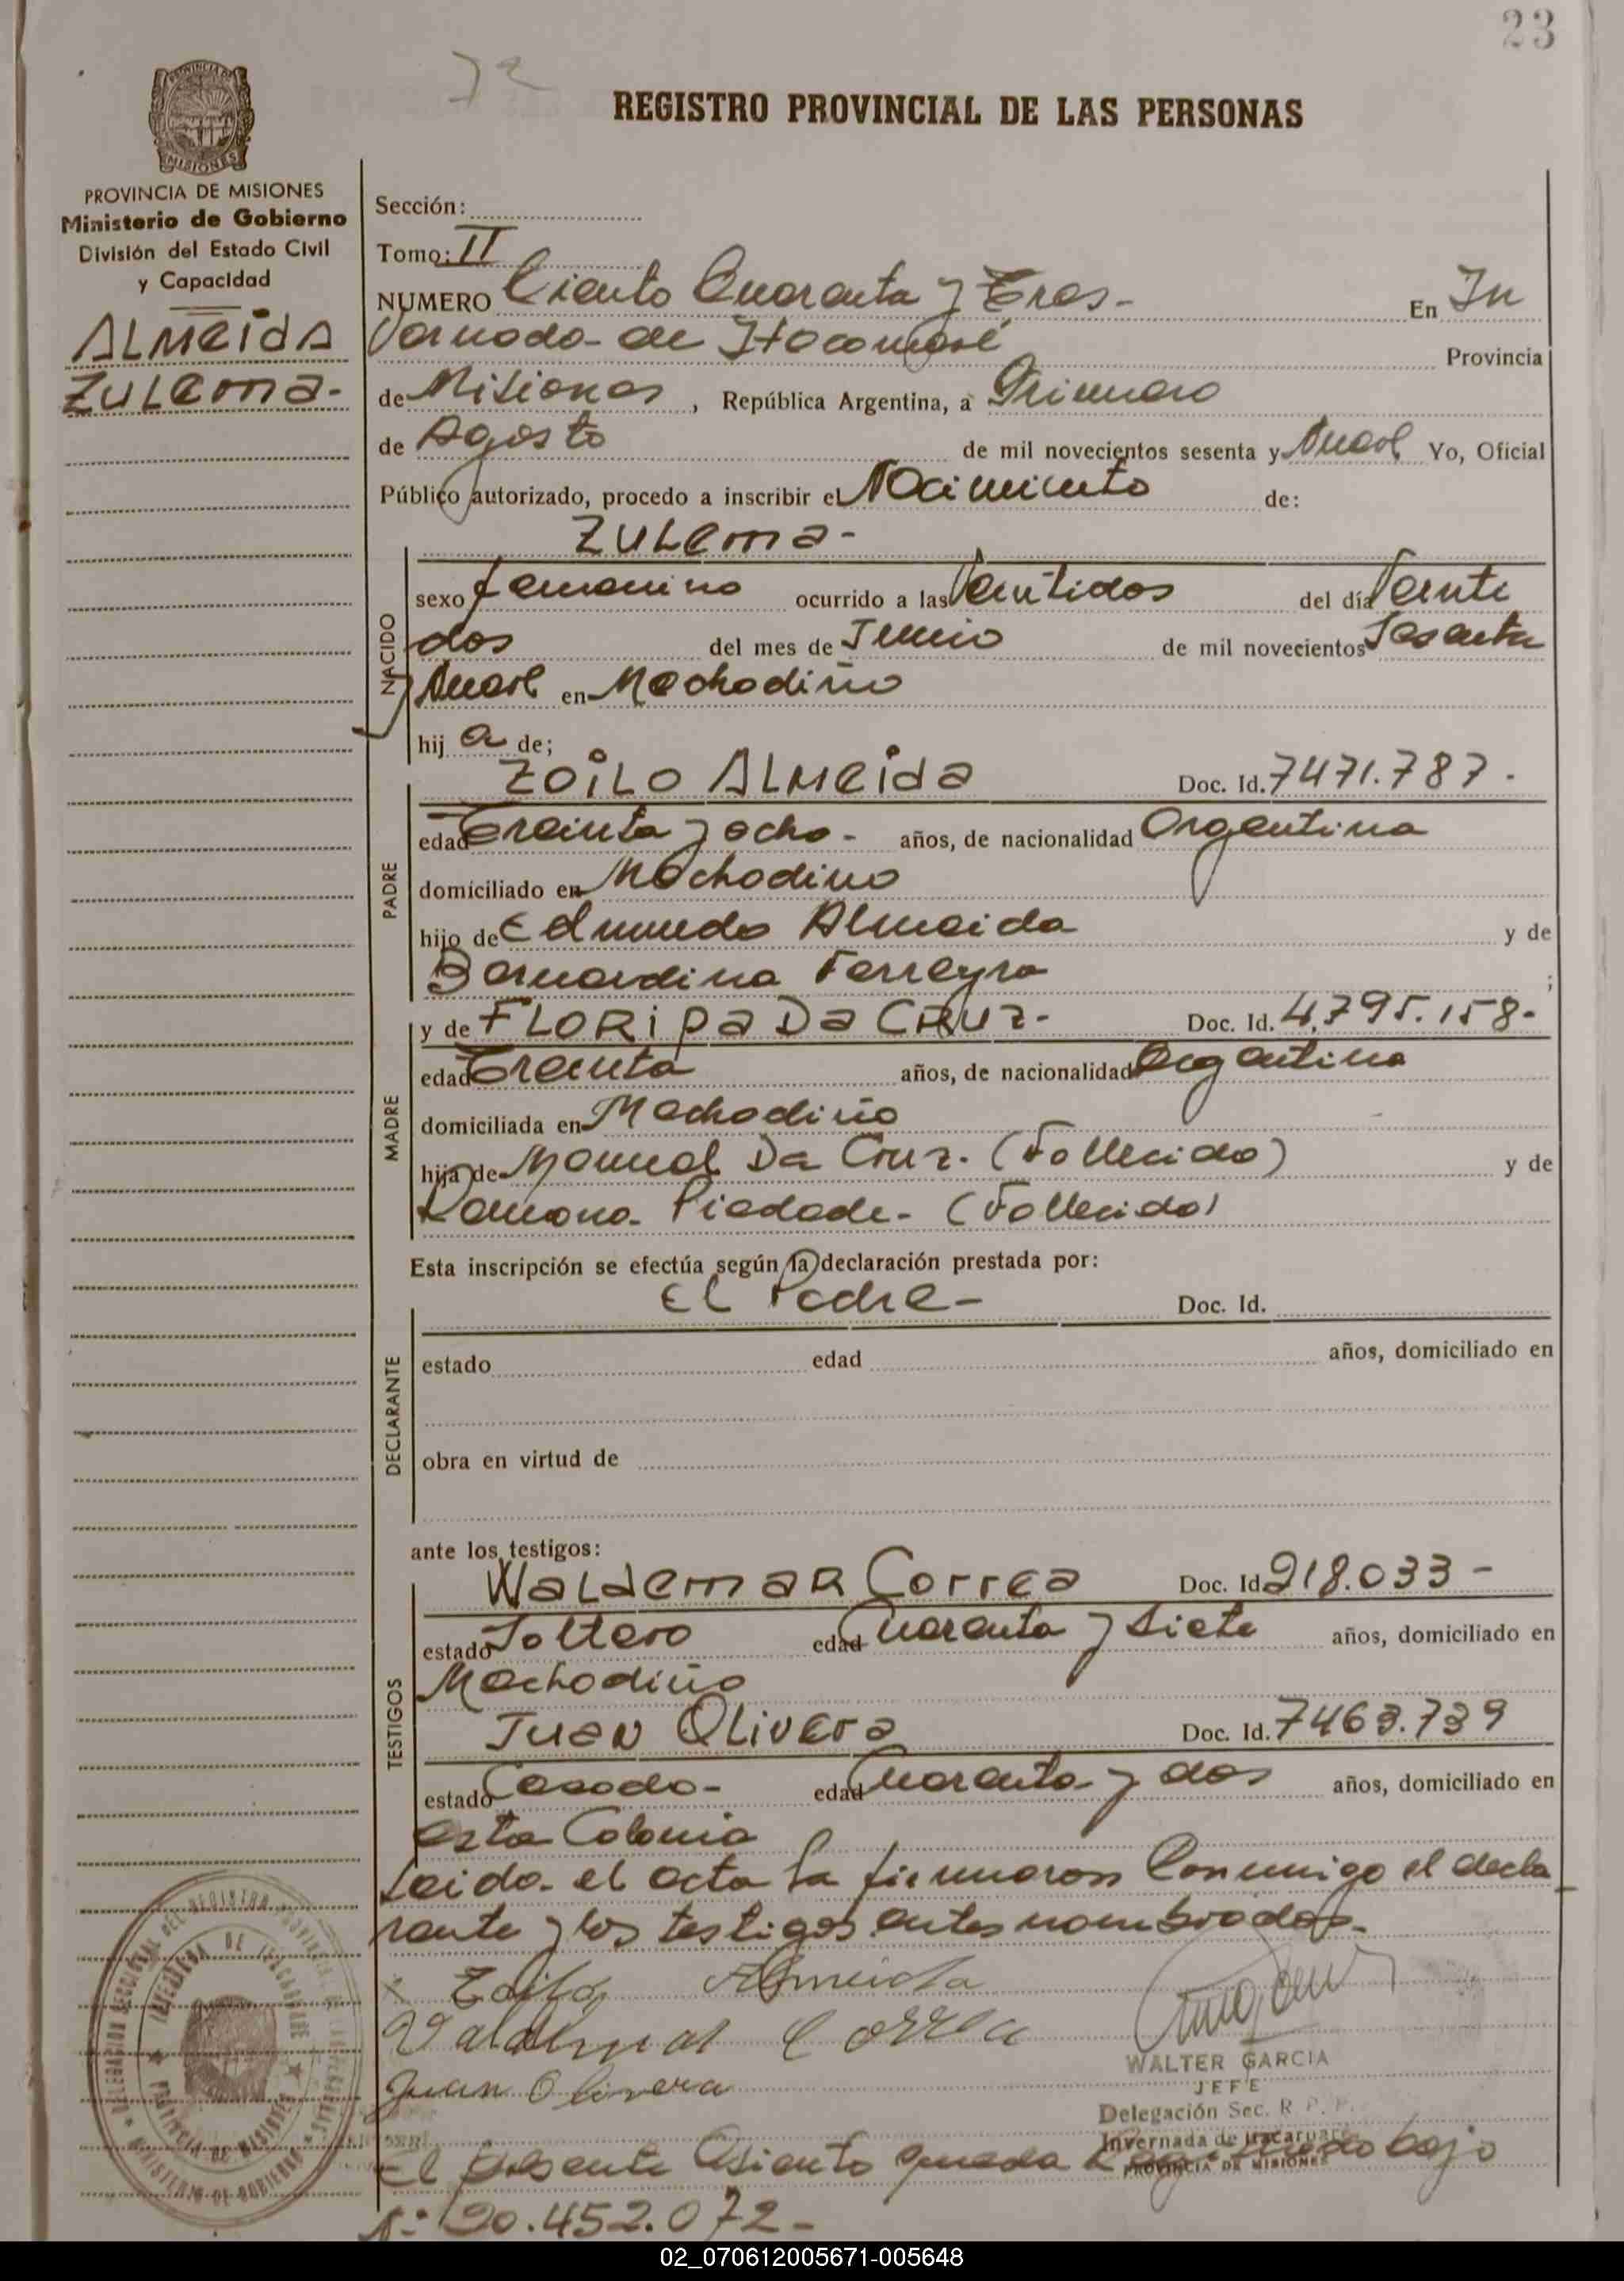 23
72
REGISTRO PROVINCIAL DE LAS PERSONAS
MISIONES
PROVINCIA DE MISIONES
Ministerio de Gobierno
División del Estado Civil
y Capacidad
ALMEIDA
ZULEMA-
Sección:
Tomo: II
NUMERO Ciento Cuarenta y Tres- En In
vernada de Itacaruaré Provincia
de Misiones, República Argentina, a Primero
de Agosto de mil novecientos sesenta y Nueve Yo, Oficial
Público autorizado, procedo a inscribir el Nacimiento de:
ZULEMA-
NACIDO
sexo femenino ocurrido a las Veintidos del día Veinti
dos del mes de Junio de mil novecientos Sesenta
y Nueve en Machadiño
hija de;
PADRE
ZOILO ALMEIDA Doc. Id. 7471.787.
edad Treinta y ocho- años, de nacionalidad Argentina
domiciliado en Machadino
hijo de Edmundo Almeida y de
Bernardina Ferreyra ;
MADRE
y de FLORIPA DA CRUZ- Doc. Id. 4,795.158-
edad Treinta años, de nacionalidad Argentina
domiciliada en Machadiño
hija de Manuel Da Cruz. (Fallecido) y de
Ramona Piedade- (Fallecida)
Esta inscripción se efectúa según la declaración prestada por:
DECLARANTE
El Padre- Doc. Id.
estado edad años, domiciliado en
obra en virtud de
ante los testigos:
TESTIGOS
WALDEMAR Correa Doc. Id 918.033-
estado Soltero edad Cuarenta y Siete años, domiciliado en
Machadiño
Juan Olivera Doc. Id. 7463.739
estado Casado- edad Cuarenta y dos años, domiciliado en
esta Colonia
Leida el acta la firmaron Conmigo el decla
rante y los testigos antes nombrados-
x Zoilo Almeida
Valdemar Correa
Juan Olivera
WALTER GARCIA
JEFE
Delegación Sec. R. P. P.
Invernada de Itacaruaré
PROVINCIA DE MISIONES
El presente Asiento queda Registrado bajo
Nº 20.452.072-
02_070612005671-005648